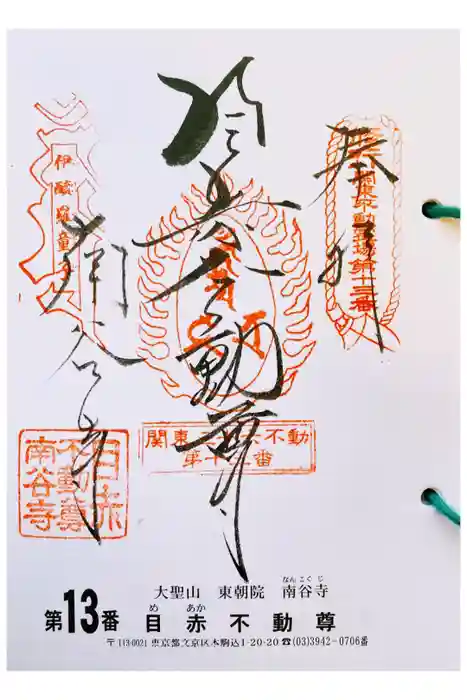 奉拝
関東不動霊場第十三番
不動尊
南谷寺
伊醯羅童子
関東三十六不動
第十三番
目赤
不動尊
南谷寺
大聖山 東朝院 南谷寺
なんこくじ
第13番 目赤不動尊
め あか
〒113-0021 東京都文京区本駒込1-20-20 ☎(03)3942-0706番